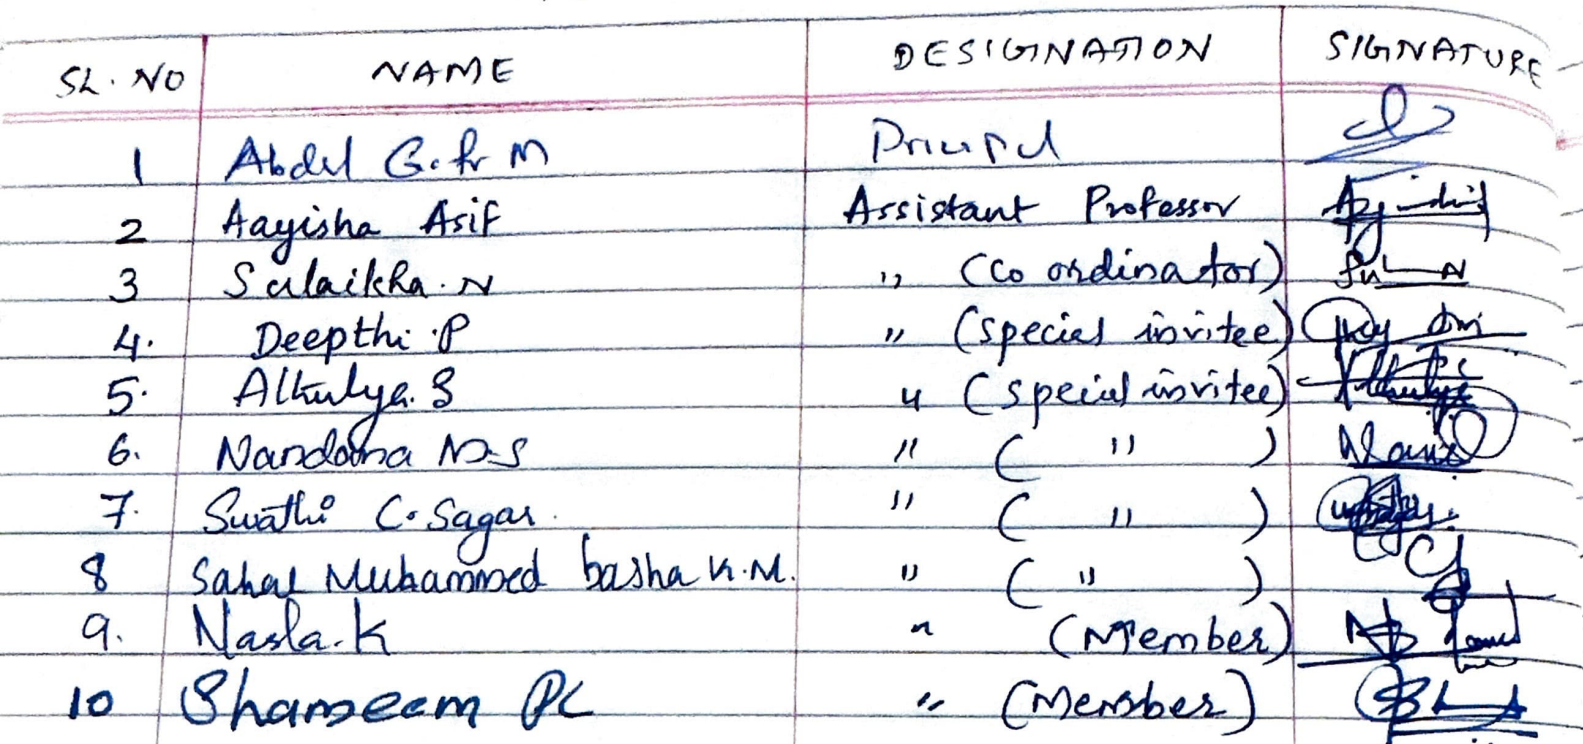 SL. NO NAME DESIGNATION SIGNATURE
1 Abdul G. M
2 Aayisha Asif Assistant Professor
3 Sulaikha. N " (Co ordinator)
4. Deepthi. P " (special invitee)
5. Alkulya. S " (special invitee)
6. Nandana M.S " ( " )
7. Swathi C. Sagar. " ( " )
8 Sahal Muhammed basha K.M. " ( " )
9. Nasla. K " (Member)
10 Shameem PK " (Member)